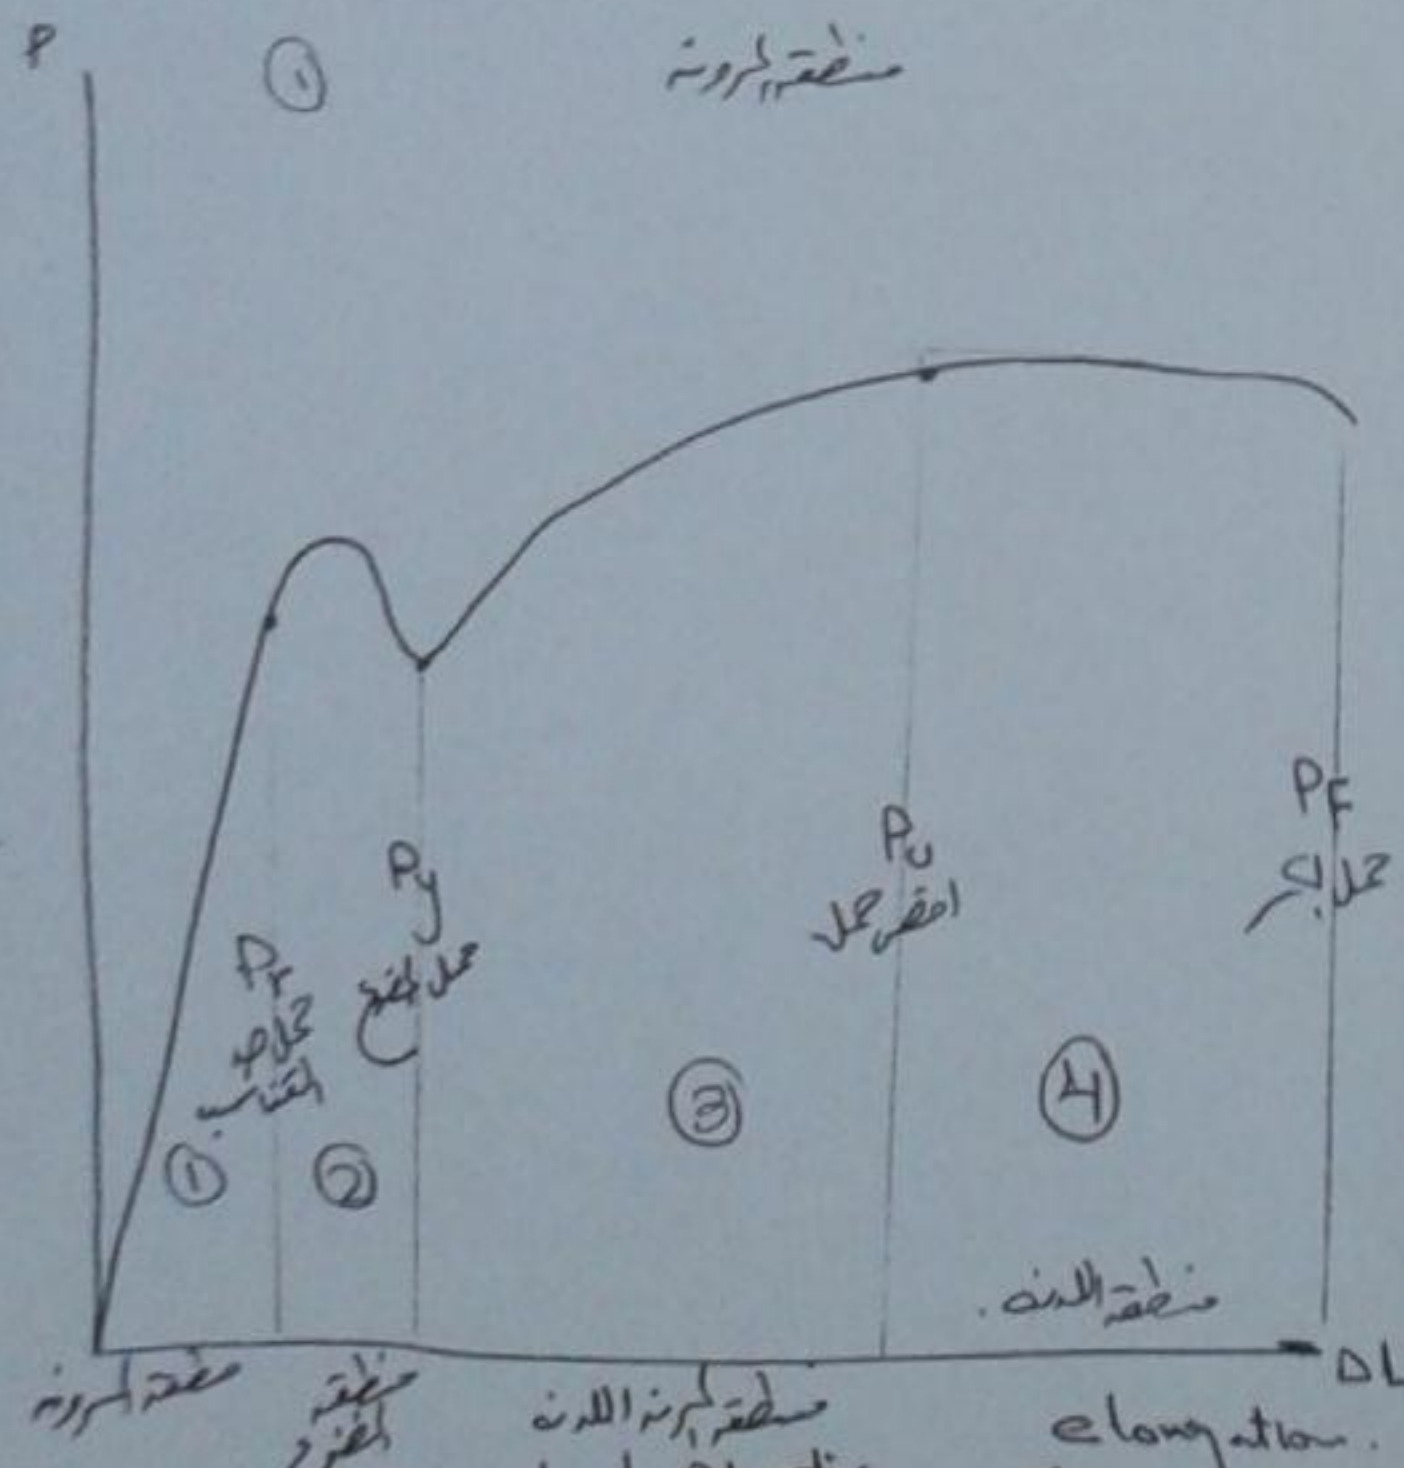 P
① منطقة المرونه
Py
حمل الخضوع
Pu
اقصى حمل
PF
حمل الكسر
حمل حد
التناسب
① ② ③ ④
منطقة اللدنه.
ΔL
منطقة المرونه
منطقة
منطقة المرنه اللدنه
elongation.